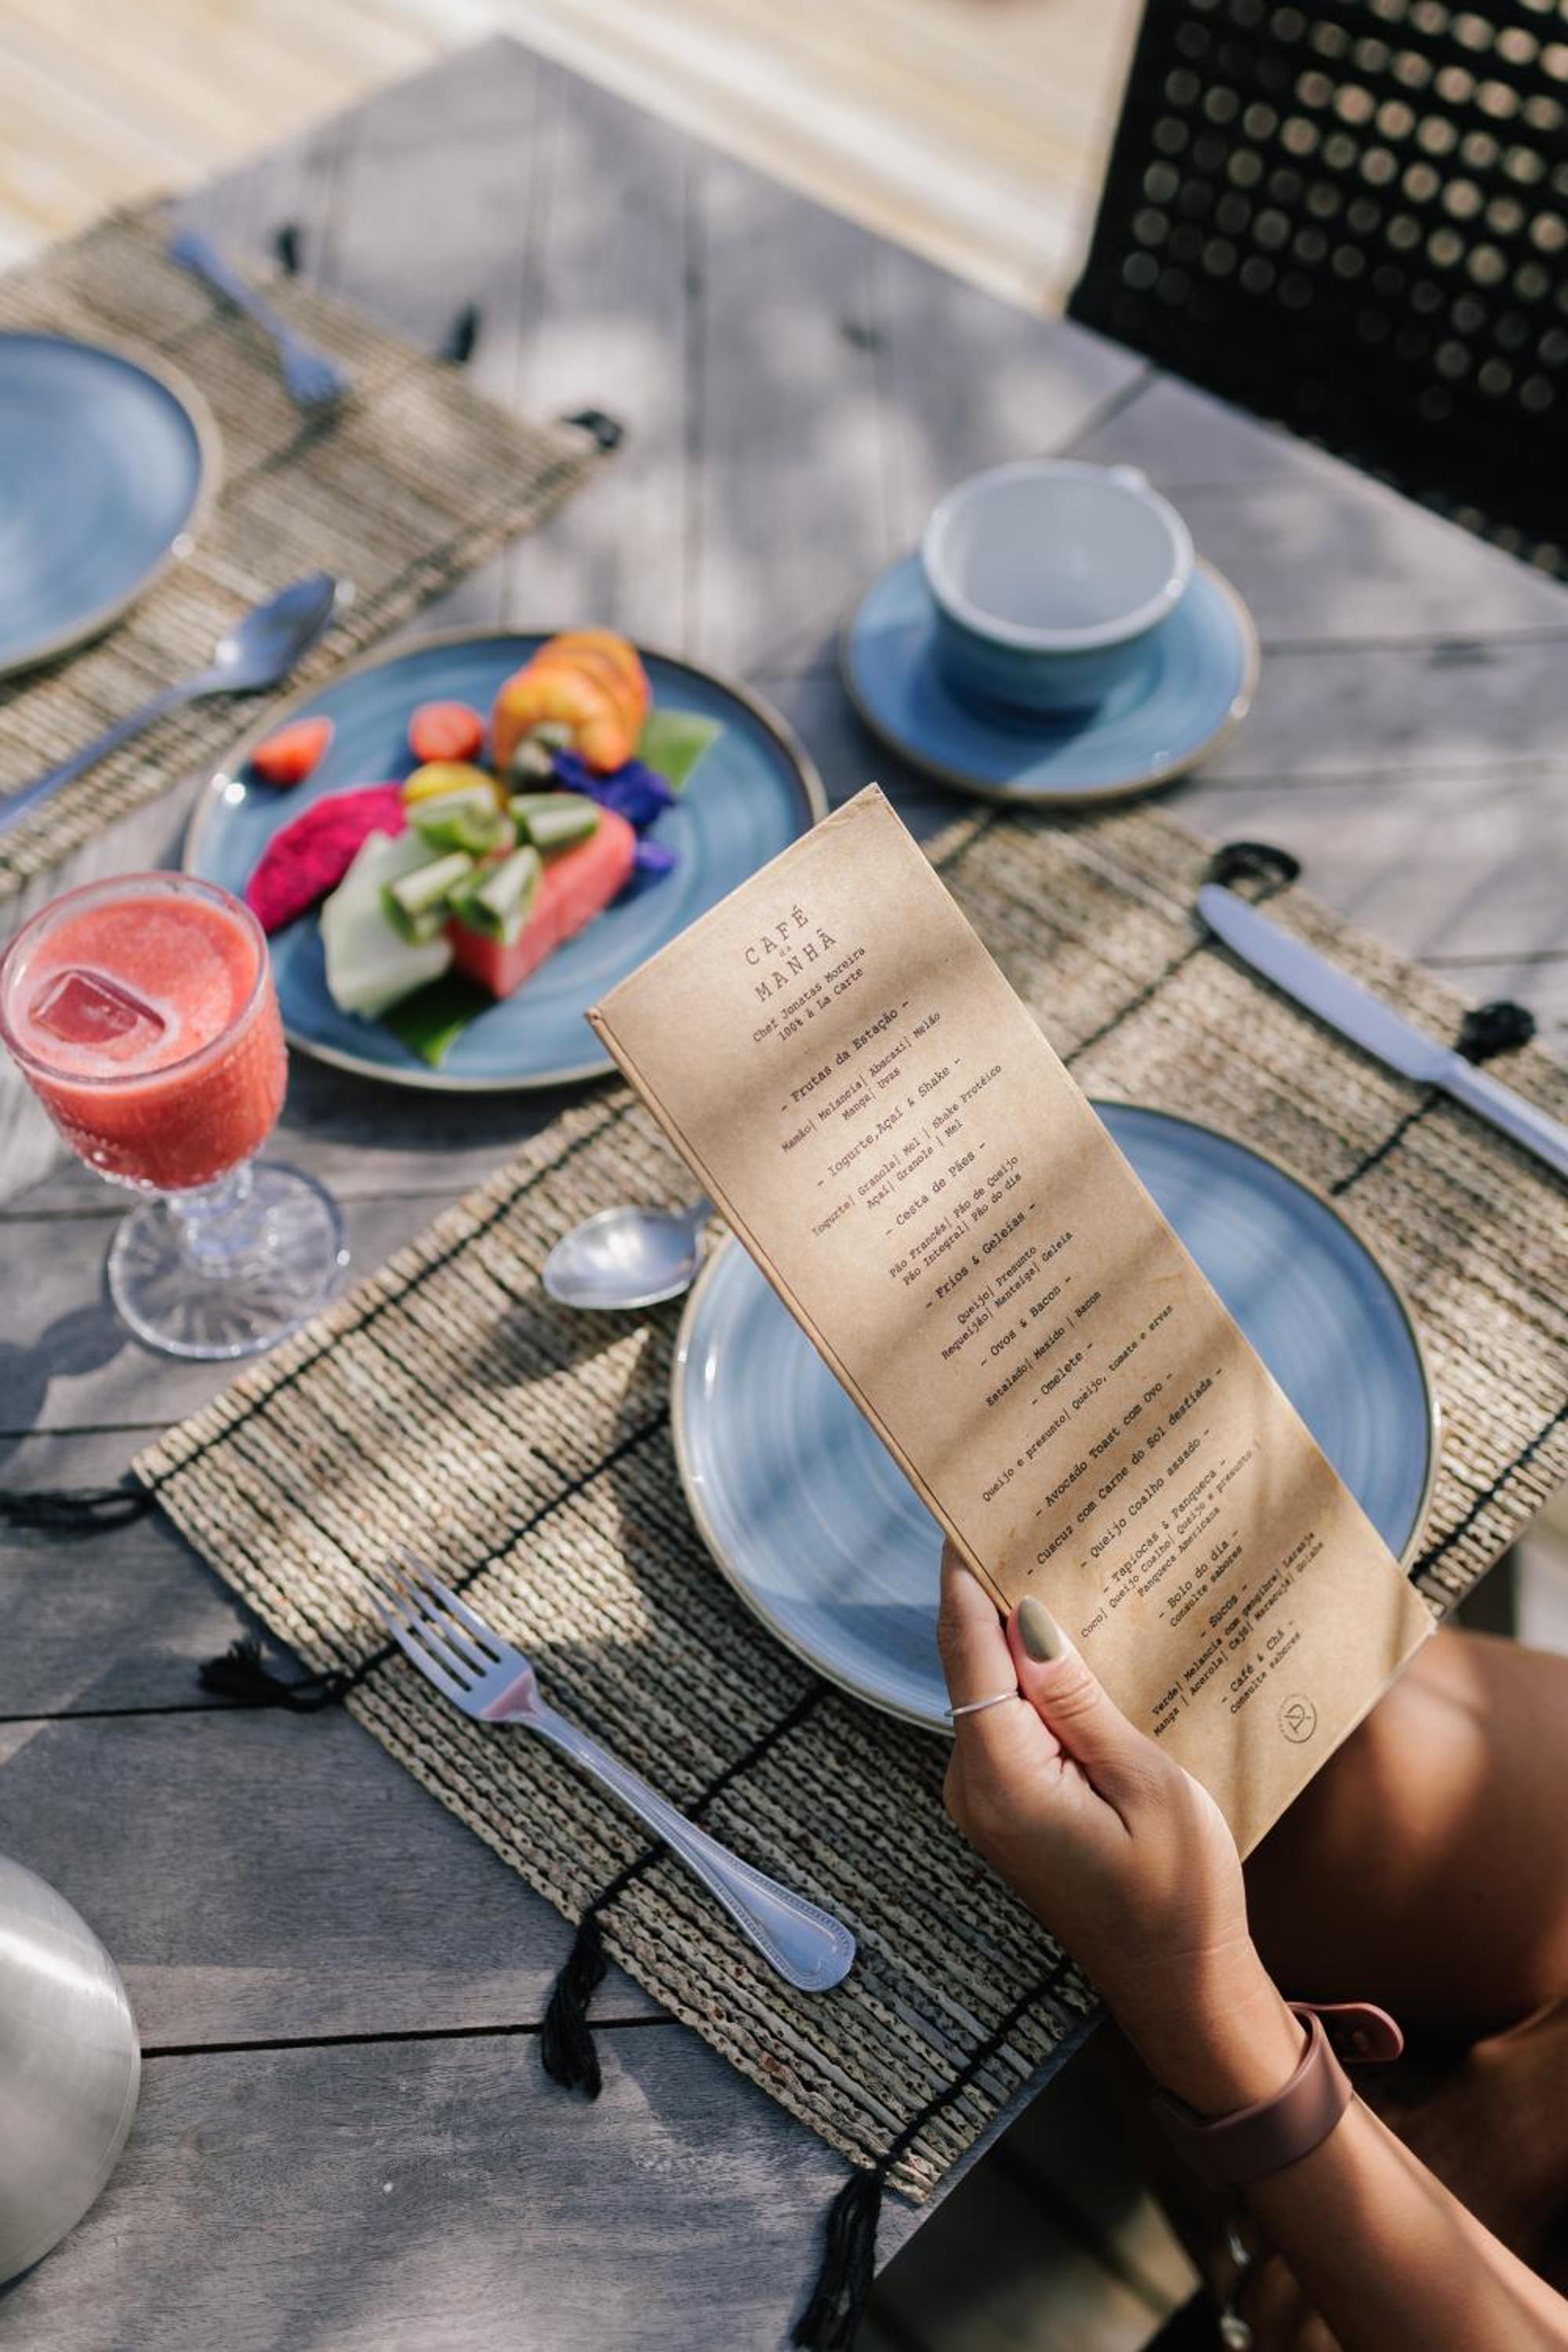 CAFÉ
da
MANHÃ
Chef Jonatas Moreira
100% à La Carte
- Frutas da Estação -
Mamão| Melancia| Abacaxi| Melão
Manga| Uvas
- Iogurte,Açaí & Shake -
Iogurte| Granola| Mel | Shake Protéico
Açaí| Granola | Mel
- Cesta de Pães -
Pão Francês| Pão de Queijo
Pão Integral| Pão do dia
- Frios & Geleias -
Queijo| Presunto
Requeijão| Manteiga| Geleia
- Ovos & Bacon -
Estalado| Mexido | Bacon
- Omelete -
Queijo e presunto| Queijo, tomate e ervas
- Avocado Toast com Ovo -
- Cuscuz com Carne do Sol desfiada -
- Queijo Coalho assado -
- Tapiocas & Panqueca -
Coco| Queijo Coalho| Queijo e presunto
Panqueca Americana
- Bolo do dia -
Consulte sabores
- Sucos -
Verde| Melancia com gengibre| Laranja
Manga | Acerola| Cajá| Maracujá| Goiaba
- Café & Chá -
Consulte sabores